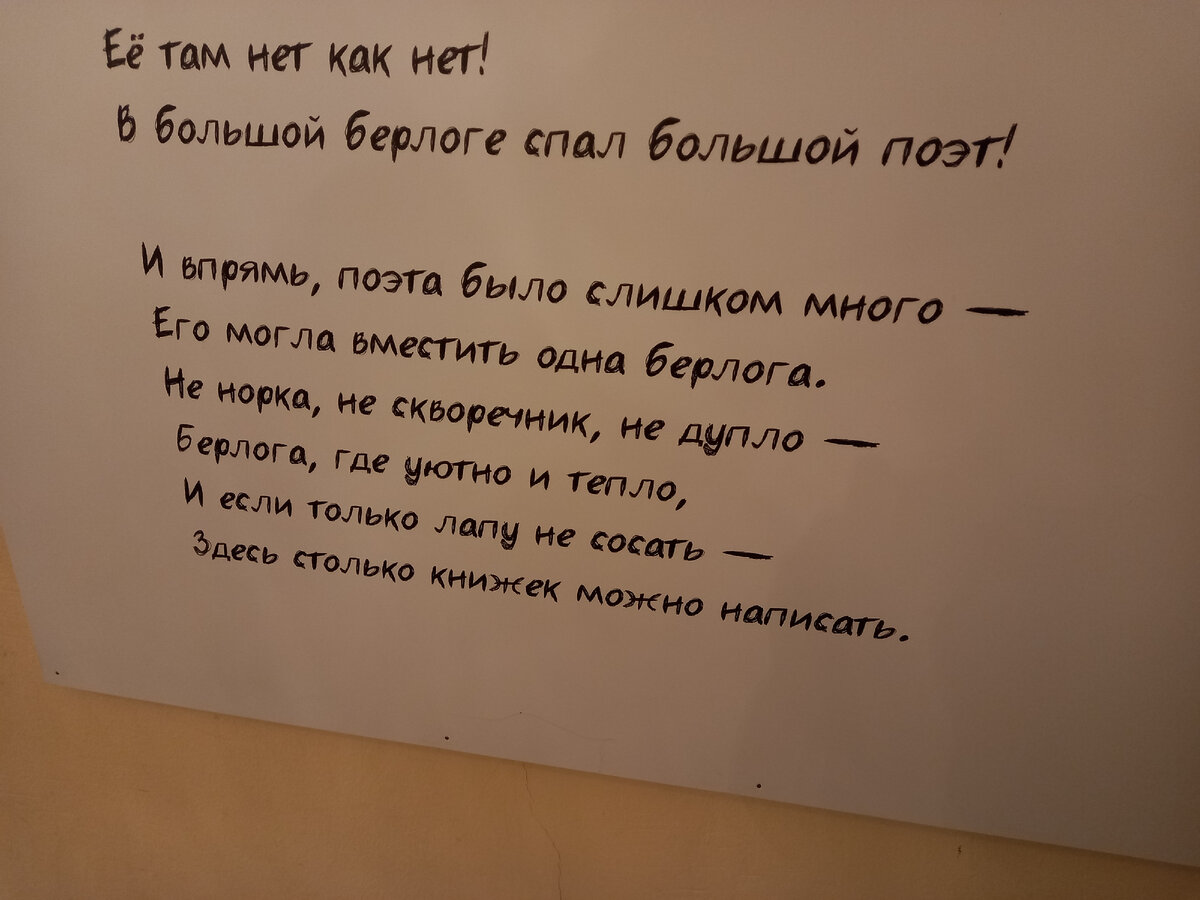 Её там нет как нет!
В большой берлоге спал большой поэт!
И впрямь, поэта было слишком много —
Его могла вместить одна берлога.
Не норка, не скворечник, не дупло —
Берлога, где уютно и тепло,
И если только лапу не сосать —
Здесь столько книжек можно написать.